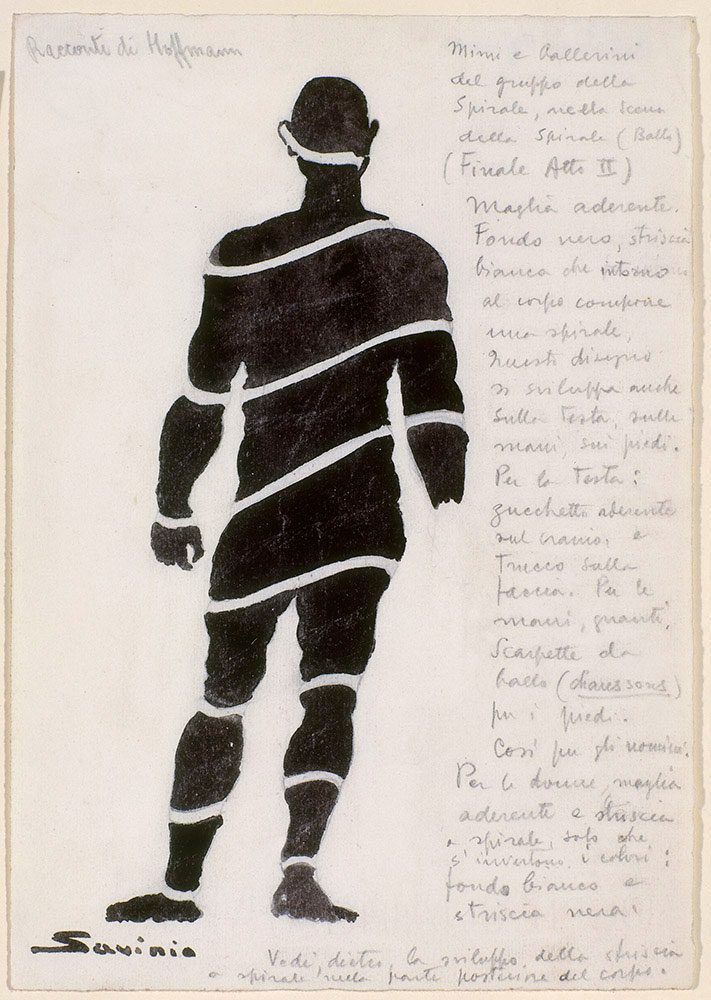 Racconti di Hoffmann
Mimi e ballerini
del gruppo della
Spirale, nella scena
della Spirale (Ballo)
(Finale Atto II)
Maglia aderente.
Fondo nero, striscia
bianca che intorno
al corpo compone
una spirale,
Questo disegno
si sviluppa anche
sulla testa, sulle
mani, sui piedi.
Per la testa:
zucchetto aderente
sul cranio, e
Trucco sulla
faccia. Per le
mani, guanti.
Scarpette da
ballo (chaussons)
per i piedi.
Così per gli uomini.
Per le donne, maglia
aderente e striscia
a spirale, solo che
s'invertono i colori:
fondo bianco e
striscia nera.
Savinio
Vedi, dietro, lo sviluppo della striscia
a spirale nella parte posteriore del corpo.